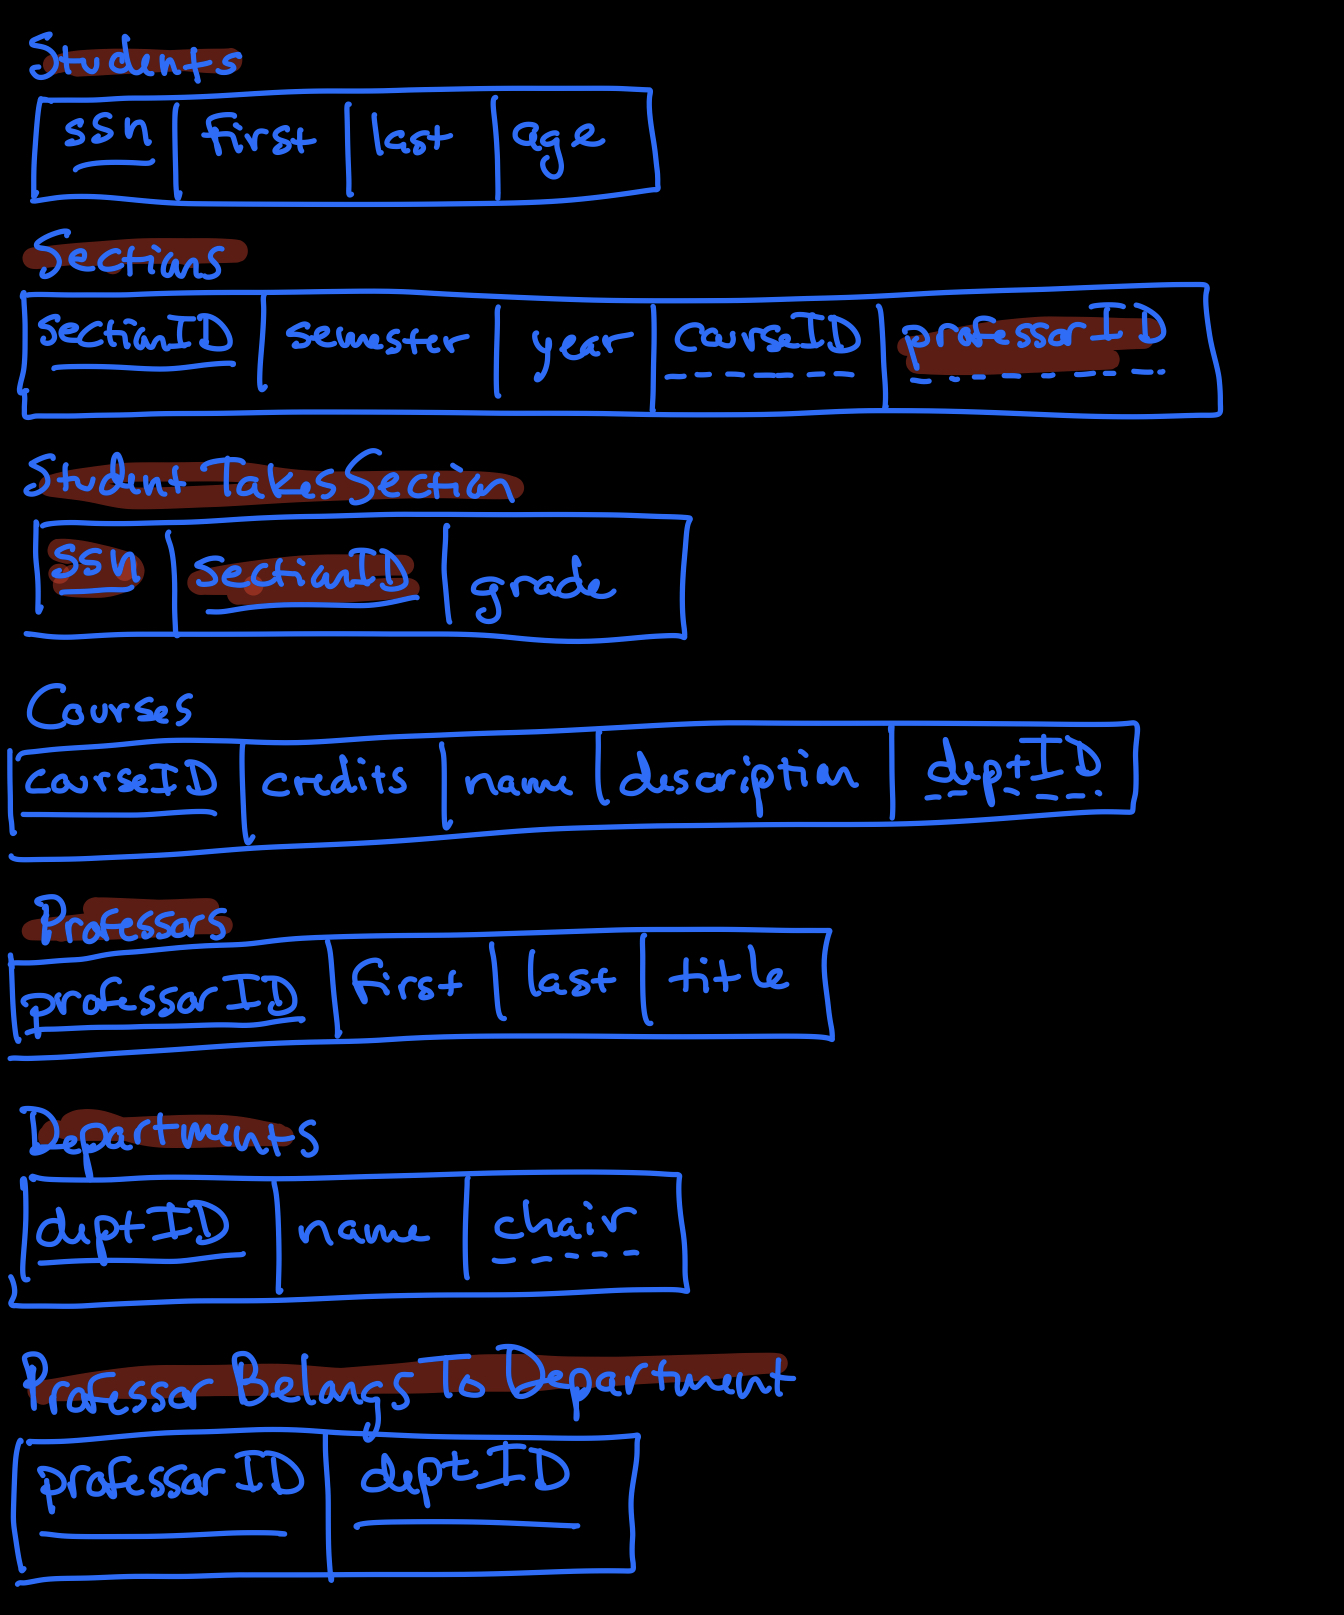 Students
ssn first last age
Sections
sectionID semester year courseID professorID
StudentTakesSection
ssn sectionID grade
Courses
courseID credits name description deptID
Professors
professorID first last title
Departments
deptID name chair
Professor Belongs To Department
professorID deptID